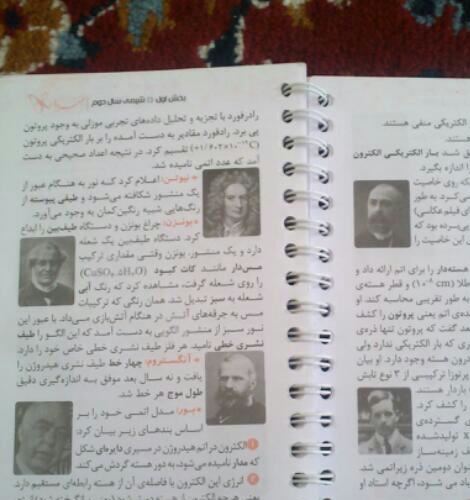 بخش اول شیمی سال دوم
رادرفورد با تجزیه و تحلیل داده‌های تجربی موزلی به وجود پروتون
پی برد. رادفورد مقادیر به دست آمده را بر بار الکتریکی پروتون
تقسیم کرد. در نتیجه اعداد صحیحی به دست
آمد که عدد اتمی نامیده شد.
* نیوتن: اعلام کرد که نور به هنگام عبور از
یک منشور شکافته می‌شود و طیفی پیوسته از
رنگ‌هایی شبیه رنگین‌کمان به وجود می‌آورد.
* بونزن: چراغ بونزن و دستگاه طیف‌بین را ابداع
کرد. دستگاه طیف‌بین یک شعله
دارد و یک منشور. بونزن وقتی مقداری ترکیب
مس‌دار مانند کات کبود (CuSO₄, 5H₂O)
را روی شعله گرفت، مشاهده کرد که رنگ آبی
شعله به سبز تبدیل شد. همان رنگی که ترکیبات
مس به جرقه‌های آتش در هنگام آتش‌بازی می‌داد. با عبور این
نور سبز از منشور الگویی به دست آمد که این الگو را طیف
نشری خطی نامید. هر فلز طیف نشری خطی خاص خود را دارد.
* آنگستروم: چهار خط طیف نشری هیدروژن را
یافت و نه سال بعد موفق به اندازه‌گیری دقیق
طول موج هر خط شد.
* بور: مدل اتمی خود را بر
اساس بندهای زیر بیان کرد.
1 الکترون در اتم هیدروژن در مسیری دایره‌ای شکل
که مدار نامیده می‌شود، به دور هسته گردش می‌کند.
2 انرژی این الکترون با فاصله‌ی آن از هسته رابطه‌ای مستقیم دارد.
الکتریکی منفی هستند.
ستند.
شد بار الکتریکی الکترون
را اندازه بگیرد.
که روی خاصیت
می‌کرد. به طور
فیلم عکاسی)
پی‌برده بود که
این خاصیت را
هسته‌دار را برای اتم ارائه داد و
طلا (10⁻⁸ cm) و قطر هسته‌ی
به طور تقریبی محاسبه کند. او
ده‌ی اتم یعنی پروتون را کشف
گفت که پروتون تنها ذره‌ی
که بار الکتریکی ندارد ولی
درون هسته وجود دارد. او بیان
پرتوزا ترکیبی از ۳ نوع تابش
باردار هستند.
را کشف کرد.
گسترده‌ی
X تولیدشده
زمینه‌ساز
دومین ذره زیراتمی شد.
می‌شود، اگرچه استاد او